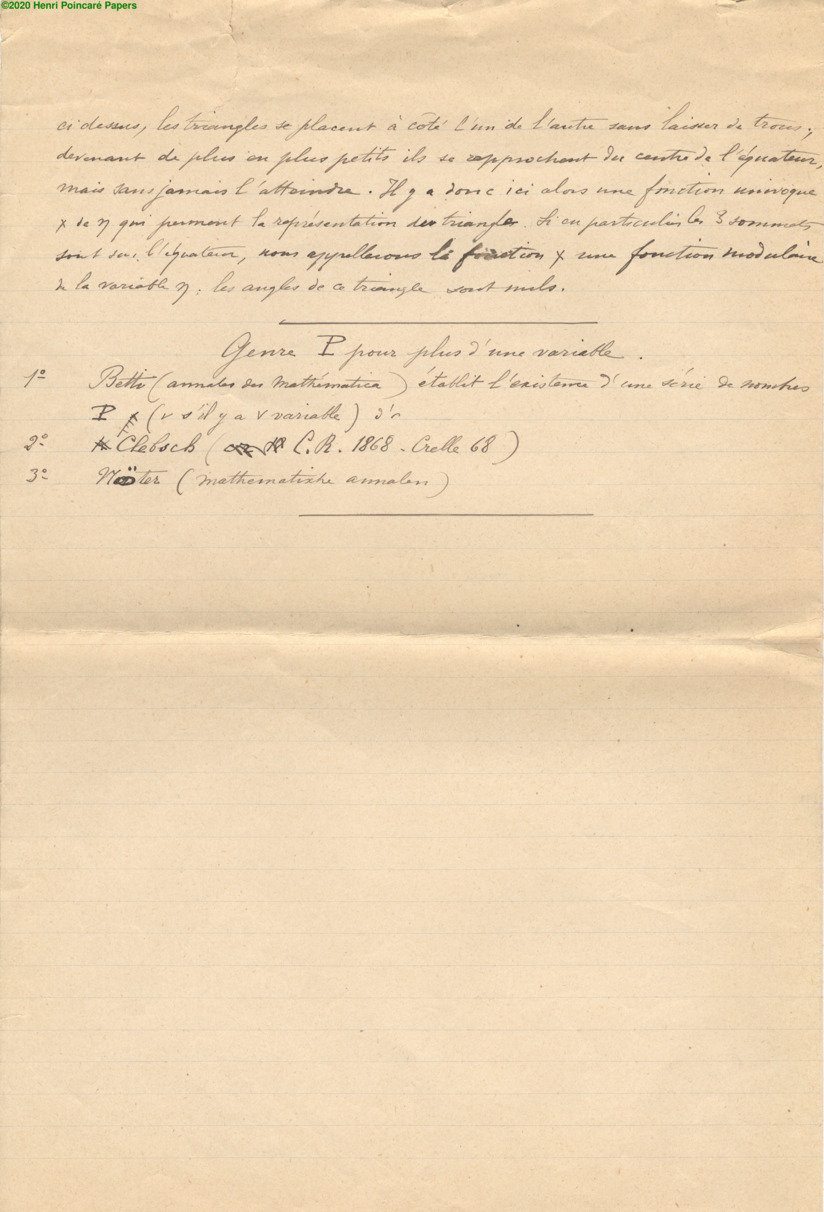 ©2020 Henri Poincaré Papers
ci dessus, les triangles se placent à coté l'un de l'autre sans laisser de trous ;
devenant de plus en plus petits ils se rapprochent du centre de l'équateur,
mais sans jamais l'atteindre. Il y a donc ici alors une fonction univoque
x de η qui perment la représentation des triangles. Si en particulier les 3 sommets
sont sur l'équateur, nous appellerons la fonction x une fonction modulaire
de la variable η ; les angles de ce triangle sont nuls.
Genre P pour plus d'une variable.
1º Betti (annales des Mathématica) établit l'existence d'une série de nombres
P (ν s'il y a ν variable) d'
2º Clebsch ( C.R. 1868 - Crelle 68)
3º Nöter (mathematische annalen)